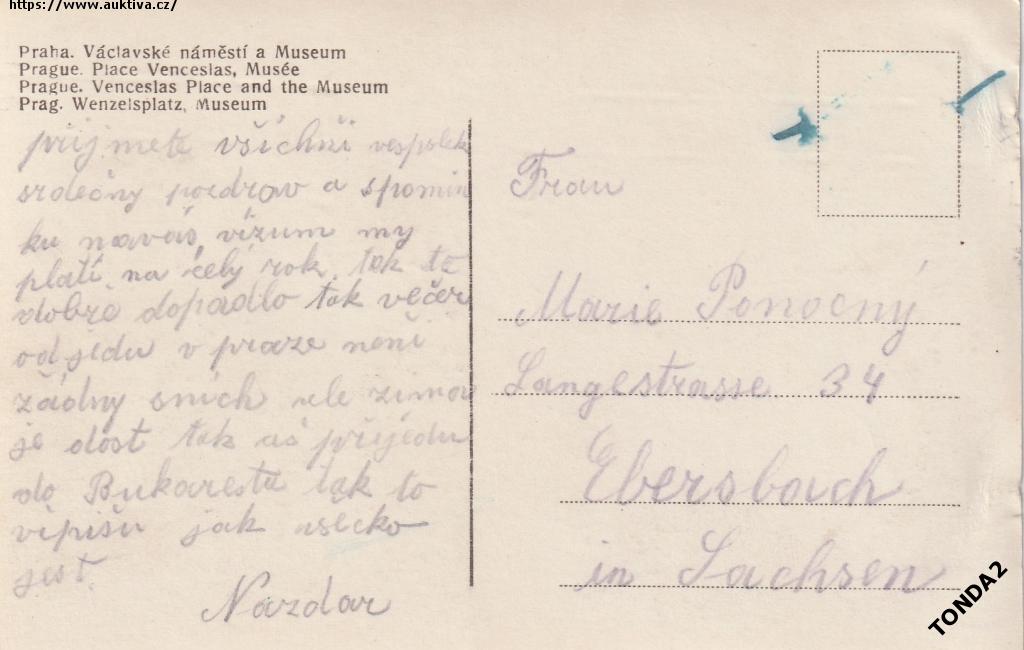 https://www.auktiva.cz/
Praha. Václavské náměstí a Museum
Prague. Place Venceslas, Musée
Prague. Venceslas Place and the Museum
Prag. Wenzelsplatz, Museum
přijmete všichňi vespolek
srdečny pozdrav a spomin
ku na váš, vízum my
platí na celý rok, tak to
dobře dopadlo tak večer
od jedu v praze neni
žádny snich ale zimou
je dost tak aš přijedu
do Bukarestu tak to
vipišu jak všecko
jest.
Nazdar
Frau
Marie Ponocný
Langestrasse 34
Ebersbach
in Sachsen
TONDA2